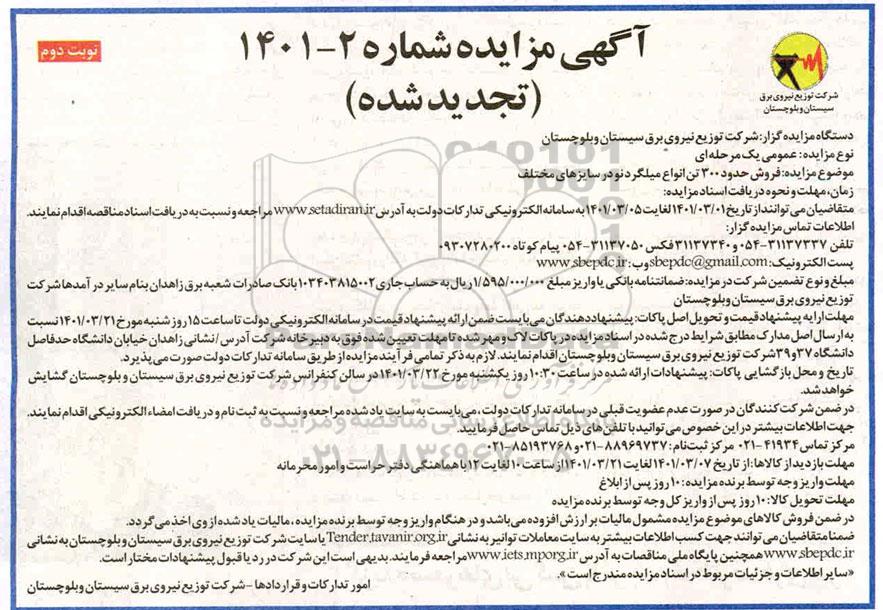 آگهی مزایده شماره ۲-۱۴۰۱
(تجدید شده)
نوبت دوم
شرکت توزیع نیروی برق
سیستان و بلوچستان
دستگاه مزایده گزار: شرکت توزیع نیروی برق سیستان و بلوچستان
نوع مزایده: عمومی یک مرحله ای
موضوع مزایده: فروش حدود ۳۰۰ تن انواع میلگرد نو در سایزهای مختلف
زمان، مهلت و نحوه دریافت اسناد مزایده:
متقاضیان می توانند از تاریخ ۱۴۰۱/۰۳/۰۱ لغایت ۱۴۰۱/۰۳/۰۵ به سامانه الکترونیکی تدارکات دولت به آدرس www.setadiran.ir مراجعه و نسبت به دریافت اسناد مناقصه اقدام نمایند.
اطلاعات تماس مزایده گزار:
تلفن ۳۱۱۳۷۳۳۷-۰۵۴ و ۳۱۱۳۷۳۴۰ فکس ۳۱۱۳۷۰۵۰-۰۵۴ پیام کوتاه ۰۹۳۰۷۲۸۰۲۰۰
پست الکترونیک: sbepdc@gmail.com وب: www.sbepdc.ir
مبلغ و نوع تضمین شرکت در مزایده: ضمانتنامه بانکی یا واریز مبلغ ۱/۵۹۵/۰۰۰/۰۰۰ ریال به حساب جاری ۱۰۳۴۰۳۸۱۵۰۰۲ بانک صادرات شعبه برق زاهدان بنام سایر در آمدها شرکت
توزیع نیروی برق سیستان و بلوچستان
مهلت ارایه پیشنهاد قیمت و تحویل اصل پاکات: پیشنهاد دهندگان می بایست ضمن ارائه پیشنهاد قیمت در سامانه الکترونیکی دولت تا ساعت ۱۵ روز شنبه مورخ ۱۴۰۱/۰۳/۲۱ نسبت
به ارسال اصل مدارک مطابق شرایط درج شده در اسناد مزایده در پاکات لاک و مهر شده تا مهلت تعیین شده فوق به دبیرخانه شرکت آدرس / نشانی زاهدان خیابان دانشگاه حدفاصل
دانشگاه ۳۷ و ۳۹ شرکت توزیع نیروی برق سیستان و بلوچستان اقدام نمایند. لازم به ذکر تمامی فرآیند مزایده از طریق سامانه تدارکات دولت صورت می پذیرد.
تاریخ و محل بازگشایی پاکات: پیشنهادات ارائه شده در ساعت ۱۰:۳۰ روز یکشنبه مورخ ۱۴۰۱/۰۳/۲۲ در سالن کنفرانس شرکت توزیع نیروی برق سیستان و بلوچستان گشایش
خواهد شد.
در ضمن شرکت کنندگان در صورت عدم عضویت قبلی در سامانه تدارکات دولت، می بایست به سایت یاد شده مراجعه و نسبت به ثبت نام و دریافت امضاء الکترونیکی اقدام نمایند.
جهت اطلاعات بیشتر در این خصوص می توانید با تلفن های ذیل تماس حاصل فرمایید.
مرکز تماس ۴۱۹۳۴-۰۲۱ مرکز ثبت نام: ۸۸۹۶۹۷۳۷-۰۲۱ و ۸۵۱۹۳۷۶۸-۰۲۱
مهلت بازدید از کالاها: از تاریخ ۱۴۰۱/۰۳/۰۷ لغایت ۱۴۰۱/۰۳/۲۱ از ساعت ۱۰ لغایت ۱۲ با هماهنگی دفتر حراست و امور محرمانه
مهلت واریز وجه توسط برنده مزایده: ۱۰ روز پس از ابلاغ
مهلت تحویل کالا: ۱۰ روز پس از واریز کل وجه توسط برنده مزایده
در ضمن فروش کالاهای موضوع مزایده مشمول مالیات بر ارزش افزوده می باشد و در هنگام واریز وجه توسط برنده مزایده، مالیات یاد شده از وی اخذ می گردد.
ضمنا متقاضیان می توانند جهت کسب اطلاعات بیشتر به سایت معاملات توانیر به نشانی Tender.tavanir.org.ir یا سایت شرکت توزیع نیروی برق سیستان و بلوچستان به نشانی
www.sbepdc.ir همچنین پایگاه ملی مناقصات به آدرس www.iets.mporg.ir مراجعه فرمایند. بدیهی است این شرکت در رد یا قبول پیشنهادات مختار است.
«سایر اطلاعات و جزئیات مربوط در اسناد مزایده مندرج است».
امور تدارکات و قراردادها - شرکت توزیع نیروی برق سیستان و بلوچستان
۰۲۱-۸۸۳۴۹۶۷۰-۵